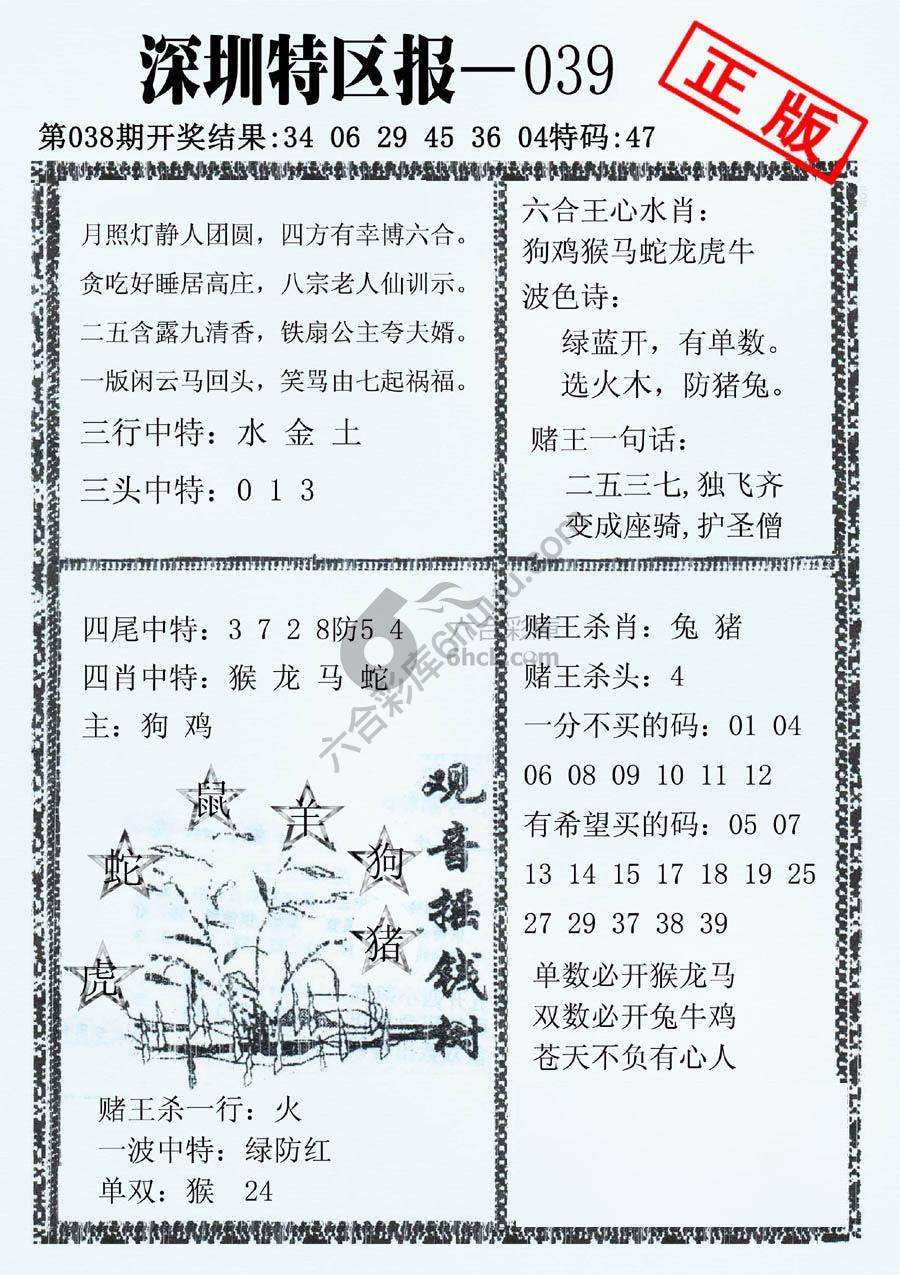 深圳特区报—039
正版
第038期开奖结果:34 06 29 45 36 04特码:47
月照灯静人团圆，四方有幸博六合。
贪吃好睡居高庄，八宗老人仙训示。
二五含露九清香，铁扇公主夸夫婿。
一版闲云马回头，笑骂由七起祸福。
三行中特：水 金 土
三头中特：0 1 3
六合王心水肖：
狗鸡猴马蛇龙虎牛
波色诗：
绿蓝开，有单数。
选火木，防猪兔。
赌王一句话：
二五三七,独飞齐
变成座骑,护圣僧
四尾中特：3 7 2 8防5 4
四肖中特：猴 龙 马 蛇
主：狗 鸡
鼠
羊
蛇
狗
猪
虎
观音摇钱树
赌王杀一行：火
一波中特：绿防红
单双：猴 24
赌王杀肖：兔 猪
赌王杀头：4
一分不买的码：01 04
06 08 09 10 11 12
有希望买的码：05 07
13 14 15 17 18 19 25
27 29 37 38 39
单数必开猴龙马
双数必开兔牛鸡
苍天不负有心人
六合彩库6huku.com
六合彩库
6hck.com